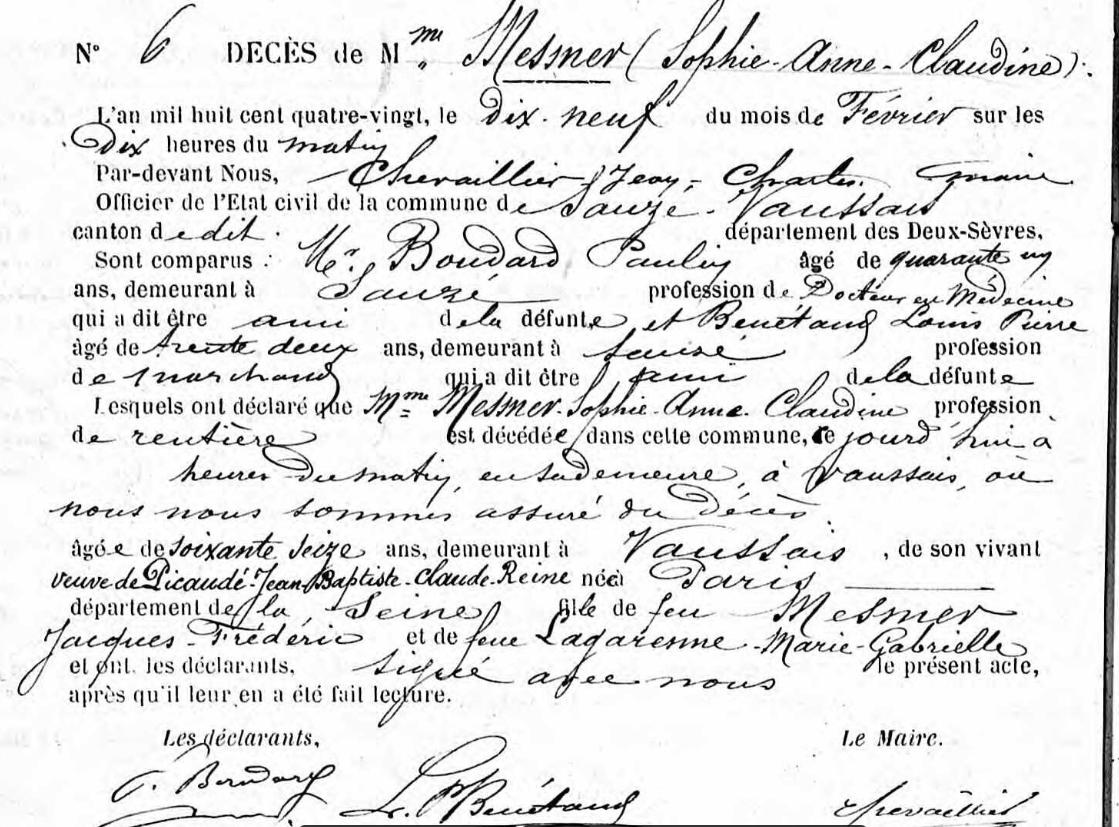 N° 6 DECÈS de Mme Mesmer (Sophie-Anne-Claudine).
L'an mil huit cent quatre-vingt, le dix-neuf du mois de Février sur les
Dix heures du matin
Par-devant Nous, Chevaillier Jean-Charles maire
Officier de l'Etat civil de la commune de Sauzé-Vaussais
canton dedit. département des Deux-Sèvres,
Sont comparus : Mr. Boudard Paulin âgé de quarante un
ans, demeurant à Sauzé profession de Docteur en Médecine
qui a dit être ami de la défunte et Benétaud Louis Pierre
âgé de trente deux ans, demeurant à Sauzé profession
de marchand qui a dit être ami de la défunte
Lesquels ont déclaré que Mme Mesmer Sophie-Anne Claudine profession
de rentière est décédée dans cette commune, ce jourd'hui à
heures du matin, en sa demeure, à Vaussais, où
nous nous sommes assuré du décès.
âgée de soixante seize ans, demeurant à Vaussais, de son vivant
veuve de Picaudé-Jean-Baptiste-Claude-Reine née à Paris
département de la Seine fille de feu Mesmer
Jacques-Fréderic et de feue Lagarenne-Marie-Gabrielle
et ont, les déclarants, signé avec nous le présent acte,
après qu'il leur en a été fait lecture.
Les déclarants, Le Maire.
P. Boudard L. P. Benetaud Chevaillier